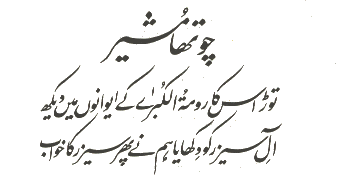 چوتھا مُشیر
توڑ اس کا رومۃُ الکُبراے کے ایوانوں میں دیکھ
آلِ سیزر کو دِکھایا ہم نے پھر سیزر کا خواب